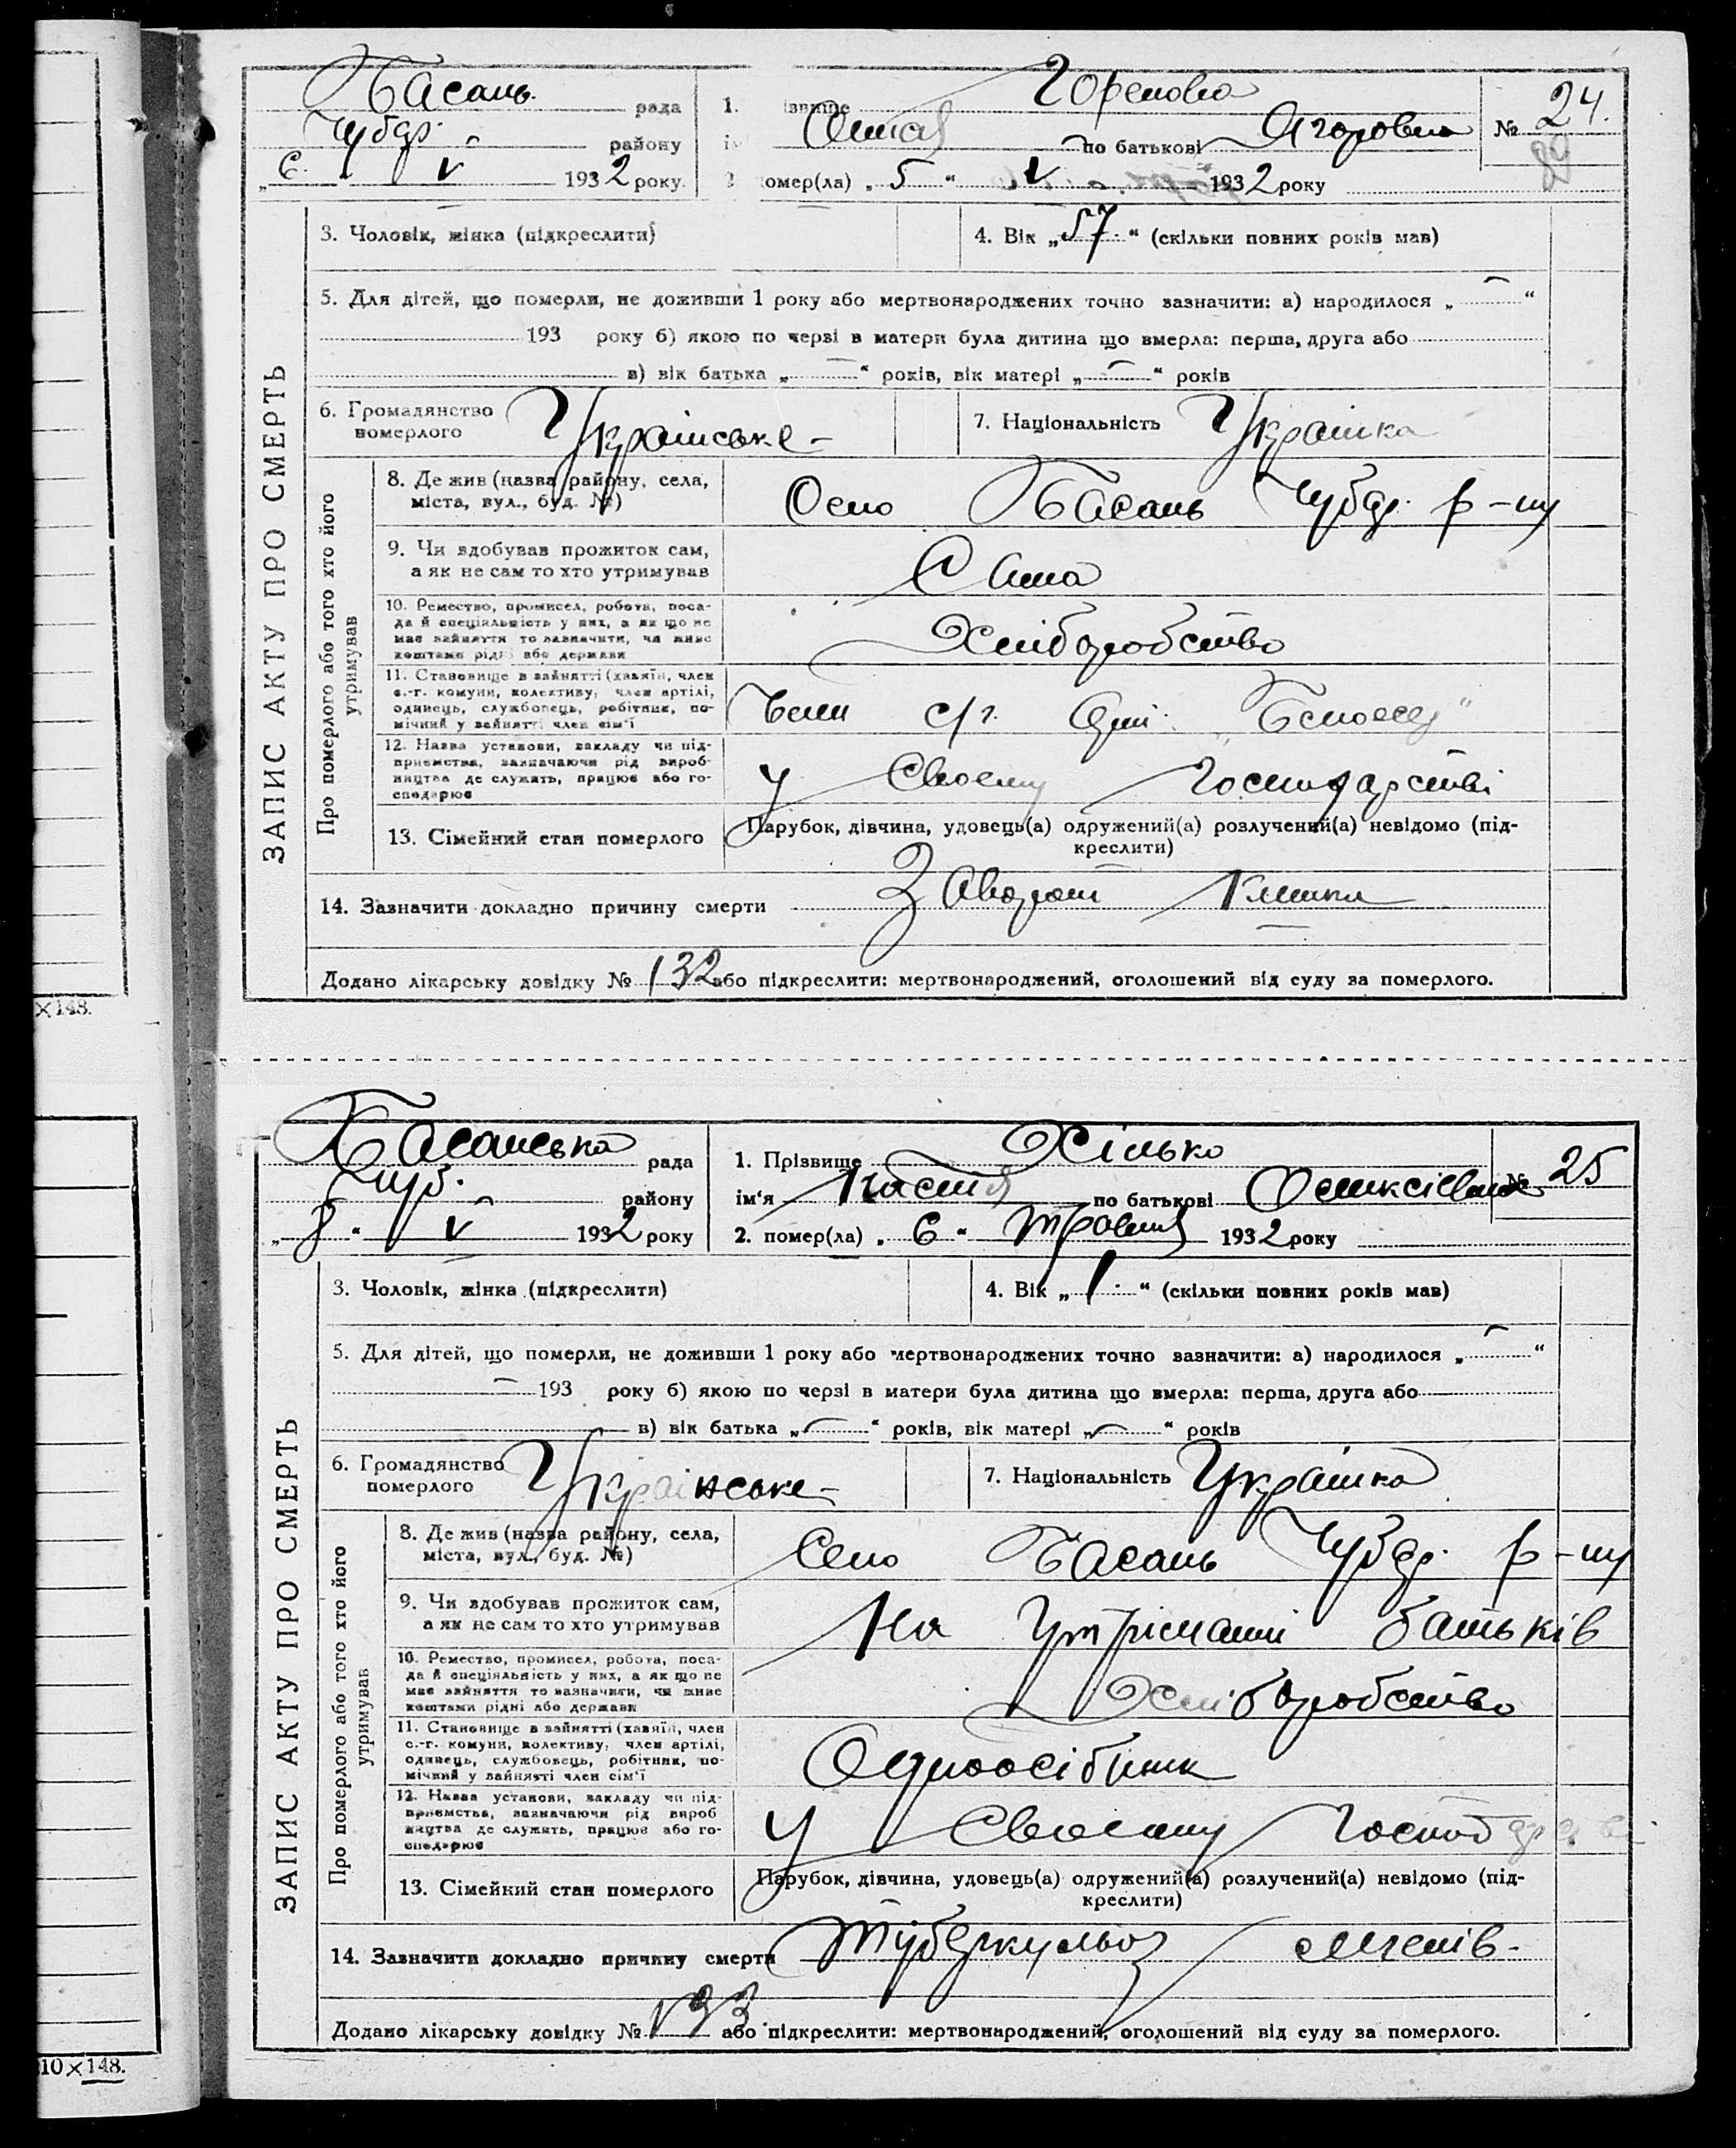 ЗАПИС АКТУ ПРО СМЕРТЬ
Басань рада
Чубар. району
„6“ V 1932 року
1. ізвище Горелова
Ягоровна
по батькові
№ 24.
2 омер(ла) „5“ V 1932 року
3. Чоловік, жінка (підкреслити)
4. Вік „57“ (скільки повних років мав)
5. Для дітей, що померли, не доживши 1 року або мертвонароджених точно зазначити: а) народилося „ — “
193 року б) якою по черзі в матери була дитина що вмерла: перша, друга або
в) вік батька „ — “ років, вік матері „ — “ років
6. Громадянство
померлого
Українське
7. Національність Українка
Про померлого або того хто його
утримував
8. Де жив (назва району, села,
міста, вул., буд. №)
Село Басань Чубар. р-ну
9. Чи здобував прожиток сам,
а як не сам то хто утримував
Сама
10. Ремество, промисел, робота, поса-
да й спеціяльність у них, а як що не
має зайняття то зазначити, чи живе
коштами рідні або держави
Хліборобство
11. Становище в зайнятті (хазяїн, член
с.-г. комуни, колективу, член артілі,
одинець, службовець, робітник, по-
мічний у зайнятті член сім'ї
Член с/г.
12. Назва установи, закладу чи під-
приємства, зазначаючи рід вироб-
ництва де служить, працює або го-
сподарює
У Своему Господарстві
13. Сімейний стан померлого
Парубок, дівчина, удовець(а) одружений(а) розлучений(а) невідомо (під-
креслити)
14. Зазначити докладно причину смерти Заворот Кишки
Додано лікарську довідку № 132 або підкреслити: мертвонароджений, оголошений від суду за померлого.
×148.
ЗАПИС АКТУ ПРО СМЕРТЬ
Басанська рада
Чуб. району
„8“ V 1932 року
1. Прізвище Хілько
ім'я Настя по батькові Оликсієвна
№ 25
2. помер(ла) „6“ Травня 1932 року
3. Чоловік, жінка (підкреслити)
4. Вік „1“ (скільки повних років мав)
5. Для дітей, що померли, не доживши 1 року або мертвонароджених точно зазначити: а) народилося „ — “
— 193 року б) якою по черзі в матери була дитина що вмерла: перша, друга або
в) вік батька „ — “ років, вік матері „ — “ років
6. Громадянство
померлого
Українське
7. Національність Українка
Про померлого або того хто його
утримував
8. Де жив (назва району, села,
міста, вул., буд. №)
Село Басань Чубар. р-ну
9. Чи здобував прожиток сам,
а як не сам то хто утримував
На Утріманні батьків
10. Ремество, промисел, робота, поса-
да й спеціяльність у них, а як що не
має зайняття то зазначити, чи живе
коштами рідні або держави
Хліборобство
11. Становище в зайнятті (хазяїн, член
с.-г. комуни, колективу, член артілі,
одинець, службовець, робітник, по-
мічний у зайнятті член сім'ї
Одноосібник
12. Назва установи, закладу чи під-
приємства, зазначаючи рід вироб
ництва де служить, працює або го-
сподарює
У Своєму Господарстві
13. Сімейний стан померлого
Парубок, дівчина, удовець(а) одружений(а) розлучений(а) невідомо (під-
креслити)
14. Зазначити докладно причину смерти Туберкульоз легенів.
Додано лікарську довідку № 133 або підкреслити: мертвонароджений, оголошений від суду за померлого.
10×148.